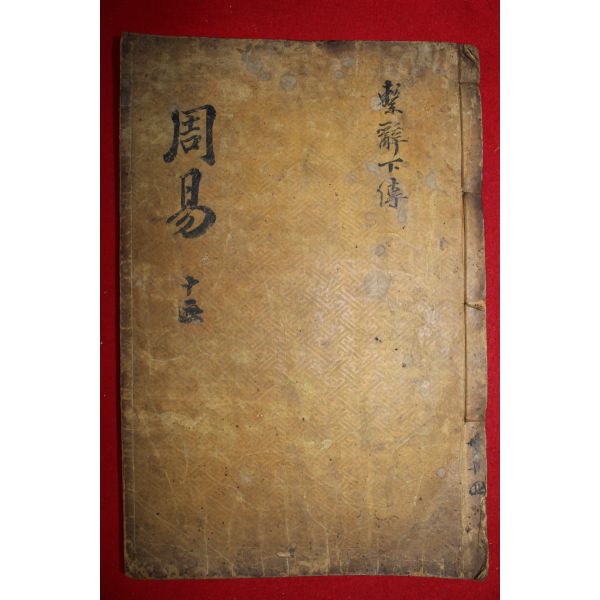 繫辭下傳
周易
十三
共十四